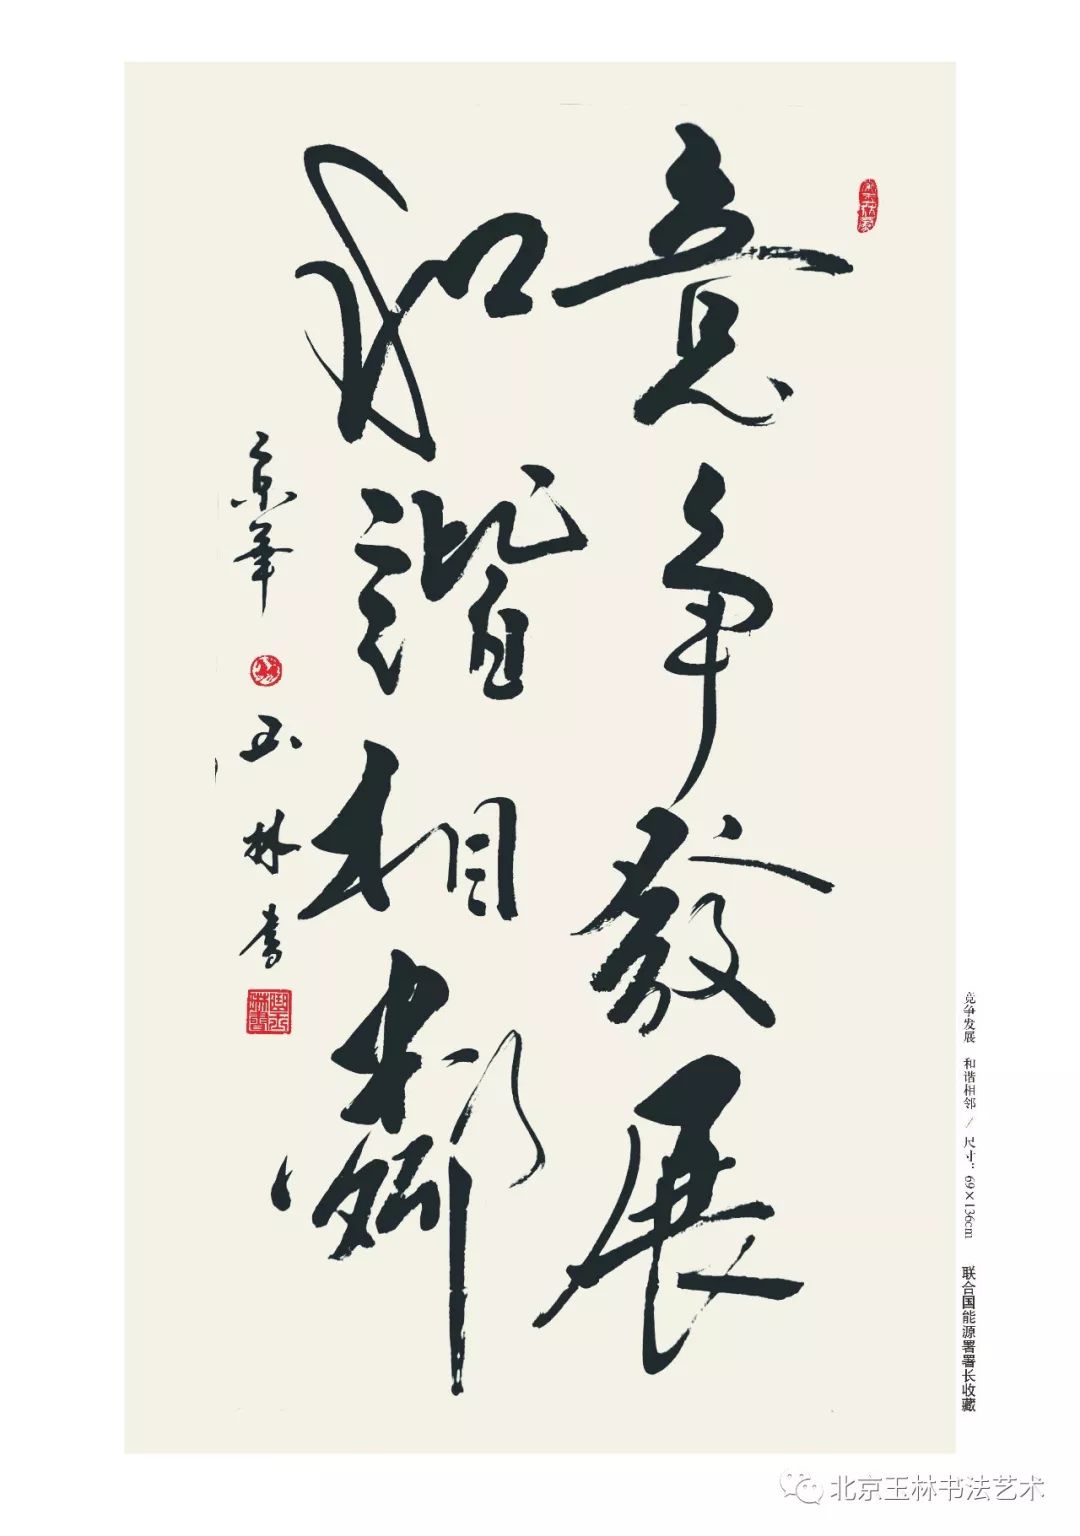 竞争發展
和谐相鄰
京華
玉林書
竞争发展 和谐相邻 / 尺寸：69×136cm 联合国能源署署长收藏
北京玉林书法艺术